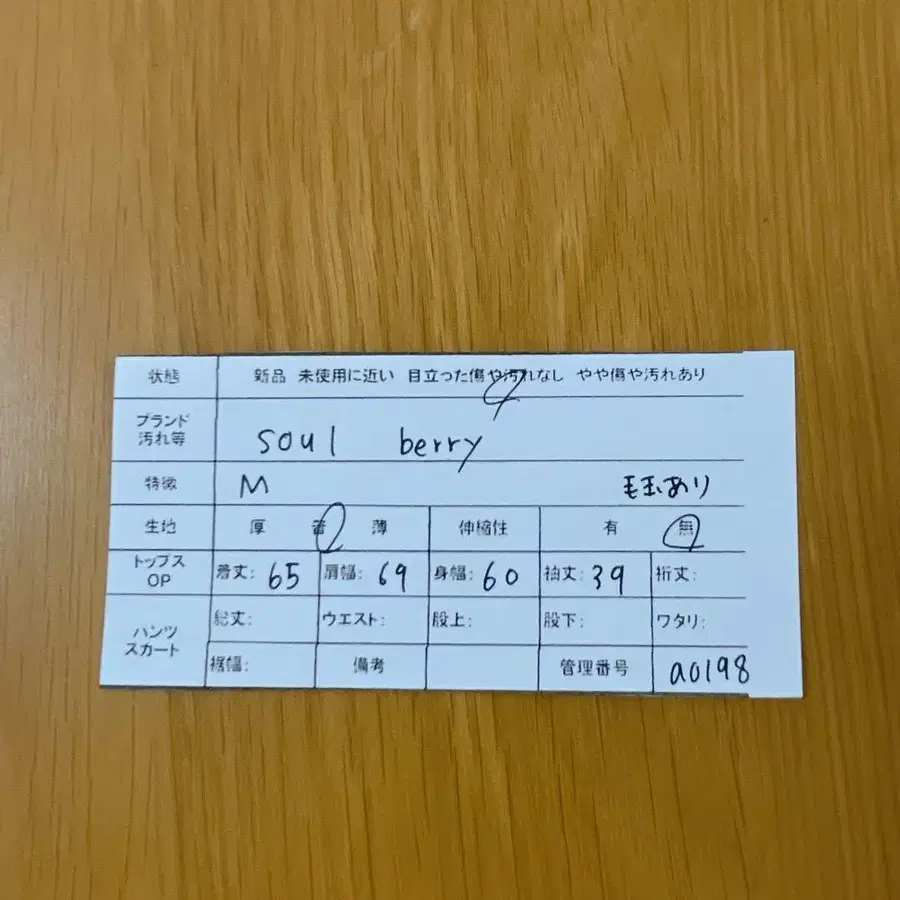 状態 新品 未使用に近い 目立った傷や汚れなし やや傷や汚れあり
ブランド
汚れ等
soul berry
特徴 M 毛玉あり
生地 厚 普 薄 伸縮性 有 無
トップス
OP
着丈: 65 肩幅: 69 身幅: 60 袖丈: 39 裄丈:
パンツ
スカート
総丈: ウエスト: 股上: 股下: ワタリ:
裾幅: 備考 管理番号 a0198